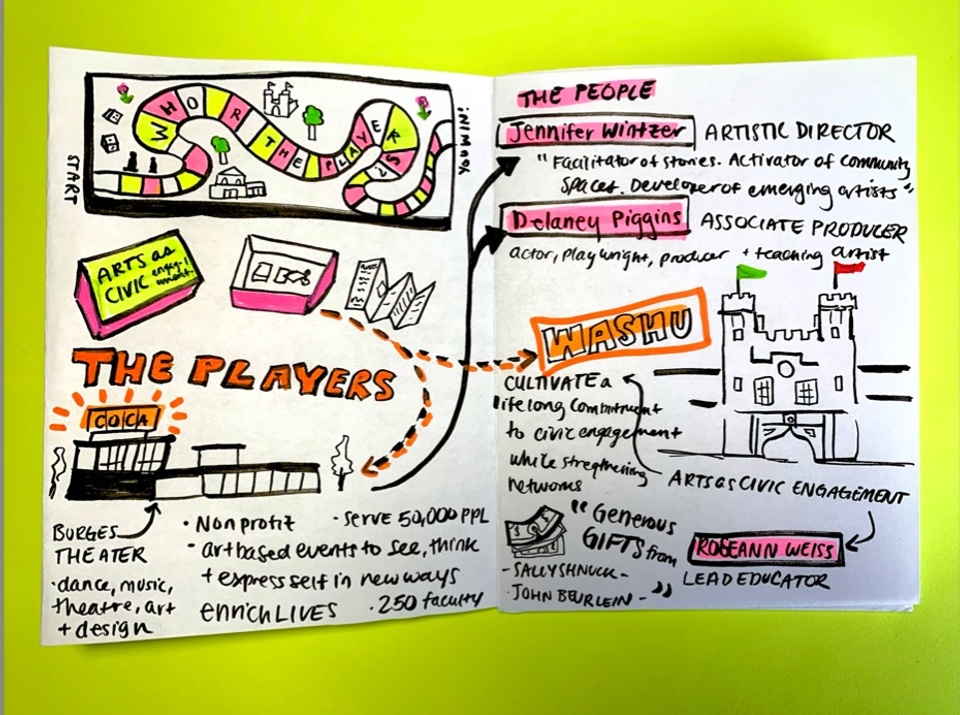 START
WHO R THE PLAYERS?
ARTS as
CIVIC engage-
ment.
THE PLAYERS
COCA
BURGES
THEATER
· dance, music,
theatre, art
+ design
· Nonprofit · serve 50,000 PPL
· art based events to see, think
+ express self in new ways
enrich LIVES · 250 faculty
THE PEOPLE
Jennifer Wintzer ARTISTIC DIRECTOR
"Facilitator of stories. Activator of community
spaces. Developer of emerging artists"
Delaney Piggins ASSOCIATE PRODUCER
actor, playwright, producer + teaching artist
WASHU
CULTIVATE a
lifelong commitment
to civic engagement
while stregthening
networks
ARTS as CIVIC ENGAGEMENT
"Generous
GIFTS from
- SALLY SHNUCK -
· JOHN BEURLEIN - "
ROSEANN WEISS
LEAD EDUCATOR